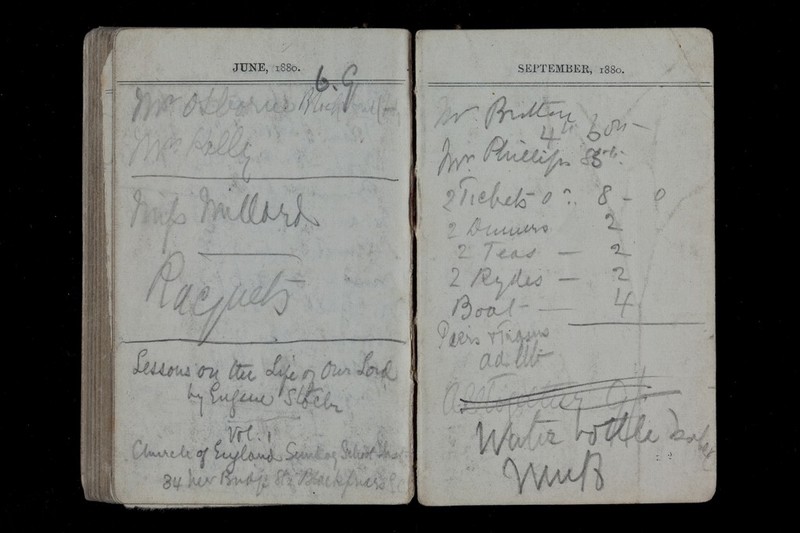 JUNE, 1880.
6.9
Mr Osborne
Mr Kelly
Miss Millard
Racquets
Lessons on the Life of Our Lord
by Eugene Stock
Vol. 1
Church of England Sunday School Inst
34 New Bridge St. Blackfriars
SEPTEMBER, 1880.
Mr Brittan
4
Mr Phillips
2 Tickets 0 8 - 0
2 Dinners 2
2 Teas — 2
2 Rydes — 2
Boat — 4
ad lib
Water bottle